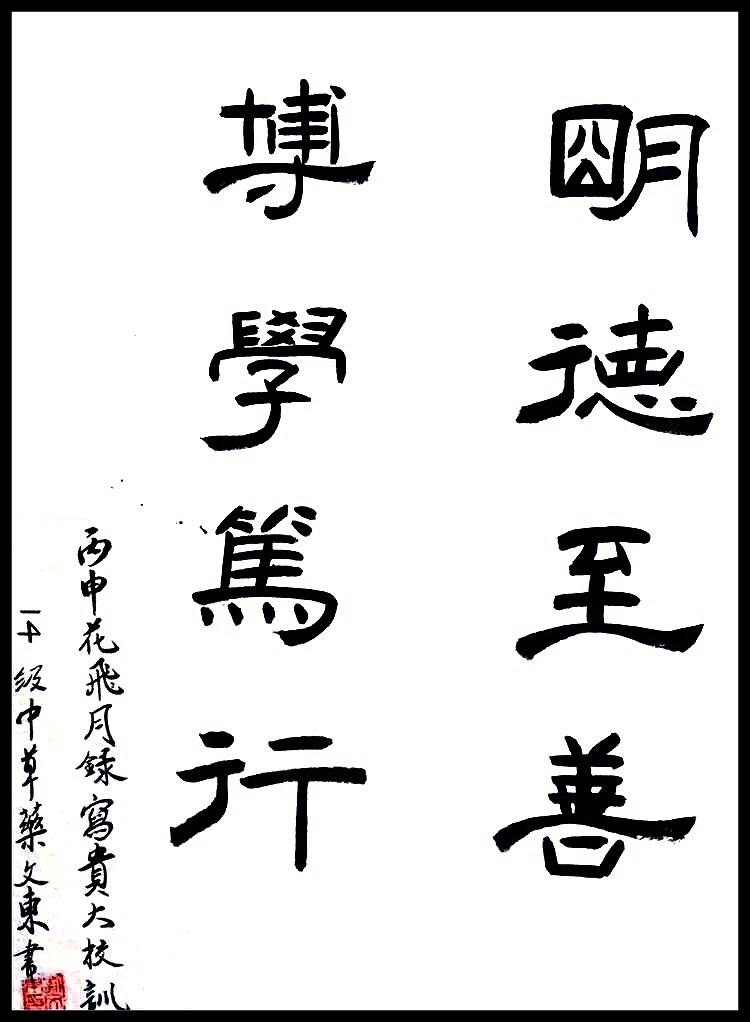 明德至善
博學篤行
丙申花飛月録寫貴大校訓
一十級中草藥文東書